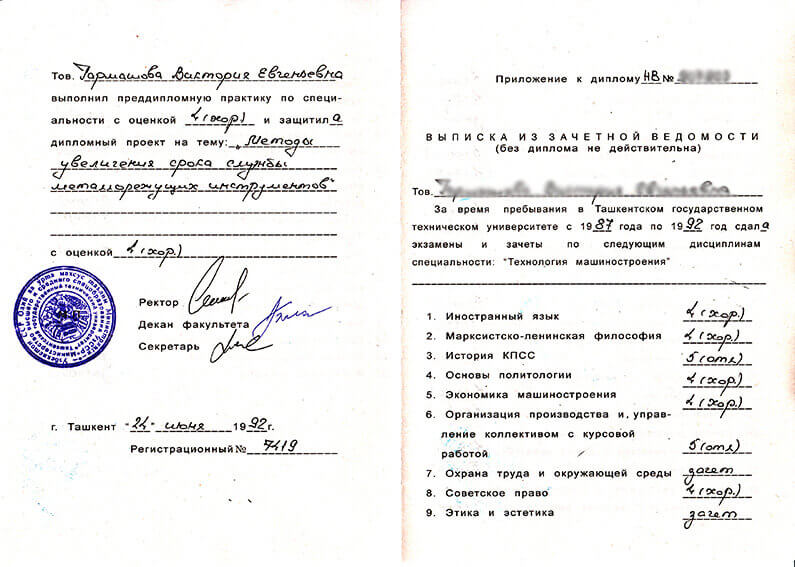 Тов. Гармашова Виктория Евгеньевна
выполнил преддипломную практику по специ-
альности с оценкой 4 (хор.) и защитил а
дипломный проект на тему: „Методы
увеличения срока службы
металлорежущих инструментов"
с оценкой 4 (хор.)
Ректор
Декан факультета
Секретарь
г. Ташкент "24" июня 1992 г.
Регистрационный № 7419
Приложение к диплому НВ №
ВЫПИСКА ИЗ ЗАЧЕТНОЙ ВЕДОМОСТИ
(без диплома не действительна)
Тов.
За время пребывания в Ташкентском государственном
техническом университете с 1987 года по 1992 год сдал а
экзамены и зачеты по следующим дисциплинам
специальности: "Технология машиностроения"
1. Иностранный язык 4 (хор.)
2. Марксистско-ленинская философия 4 (хор.)
3. История КПСС 5 (отл)
4. Основы политологии 4 (хор.)
5. Экономика машиностроения 4 (хор.)
6. Организация производства и, управ-
ление коллективом с курсовой
работой 5 (отл)
7. Охрана труда и окружающей среды зачет
8. Советское право 4 (хор.)
9. Этика и эстетика зачет